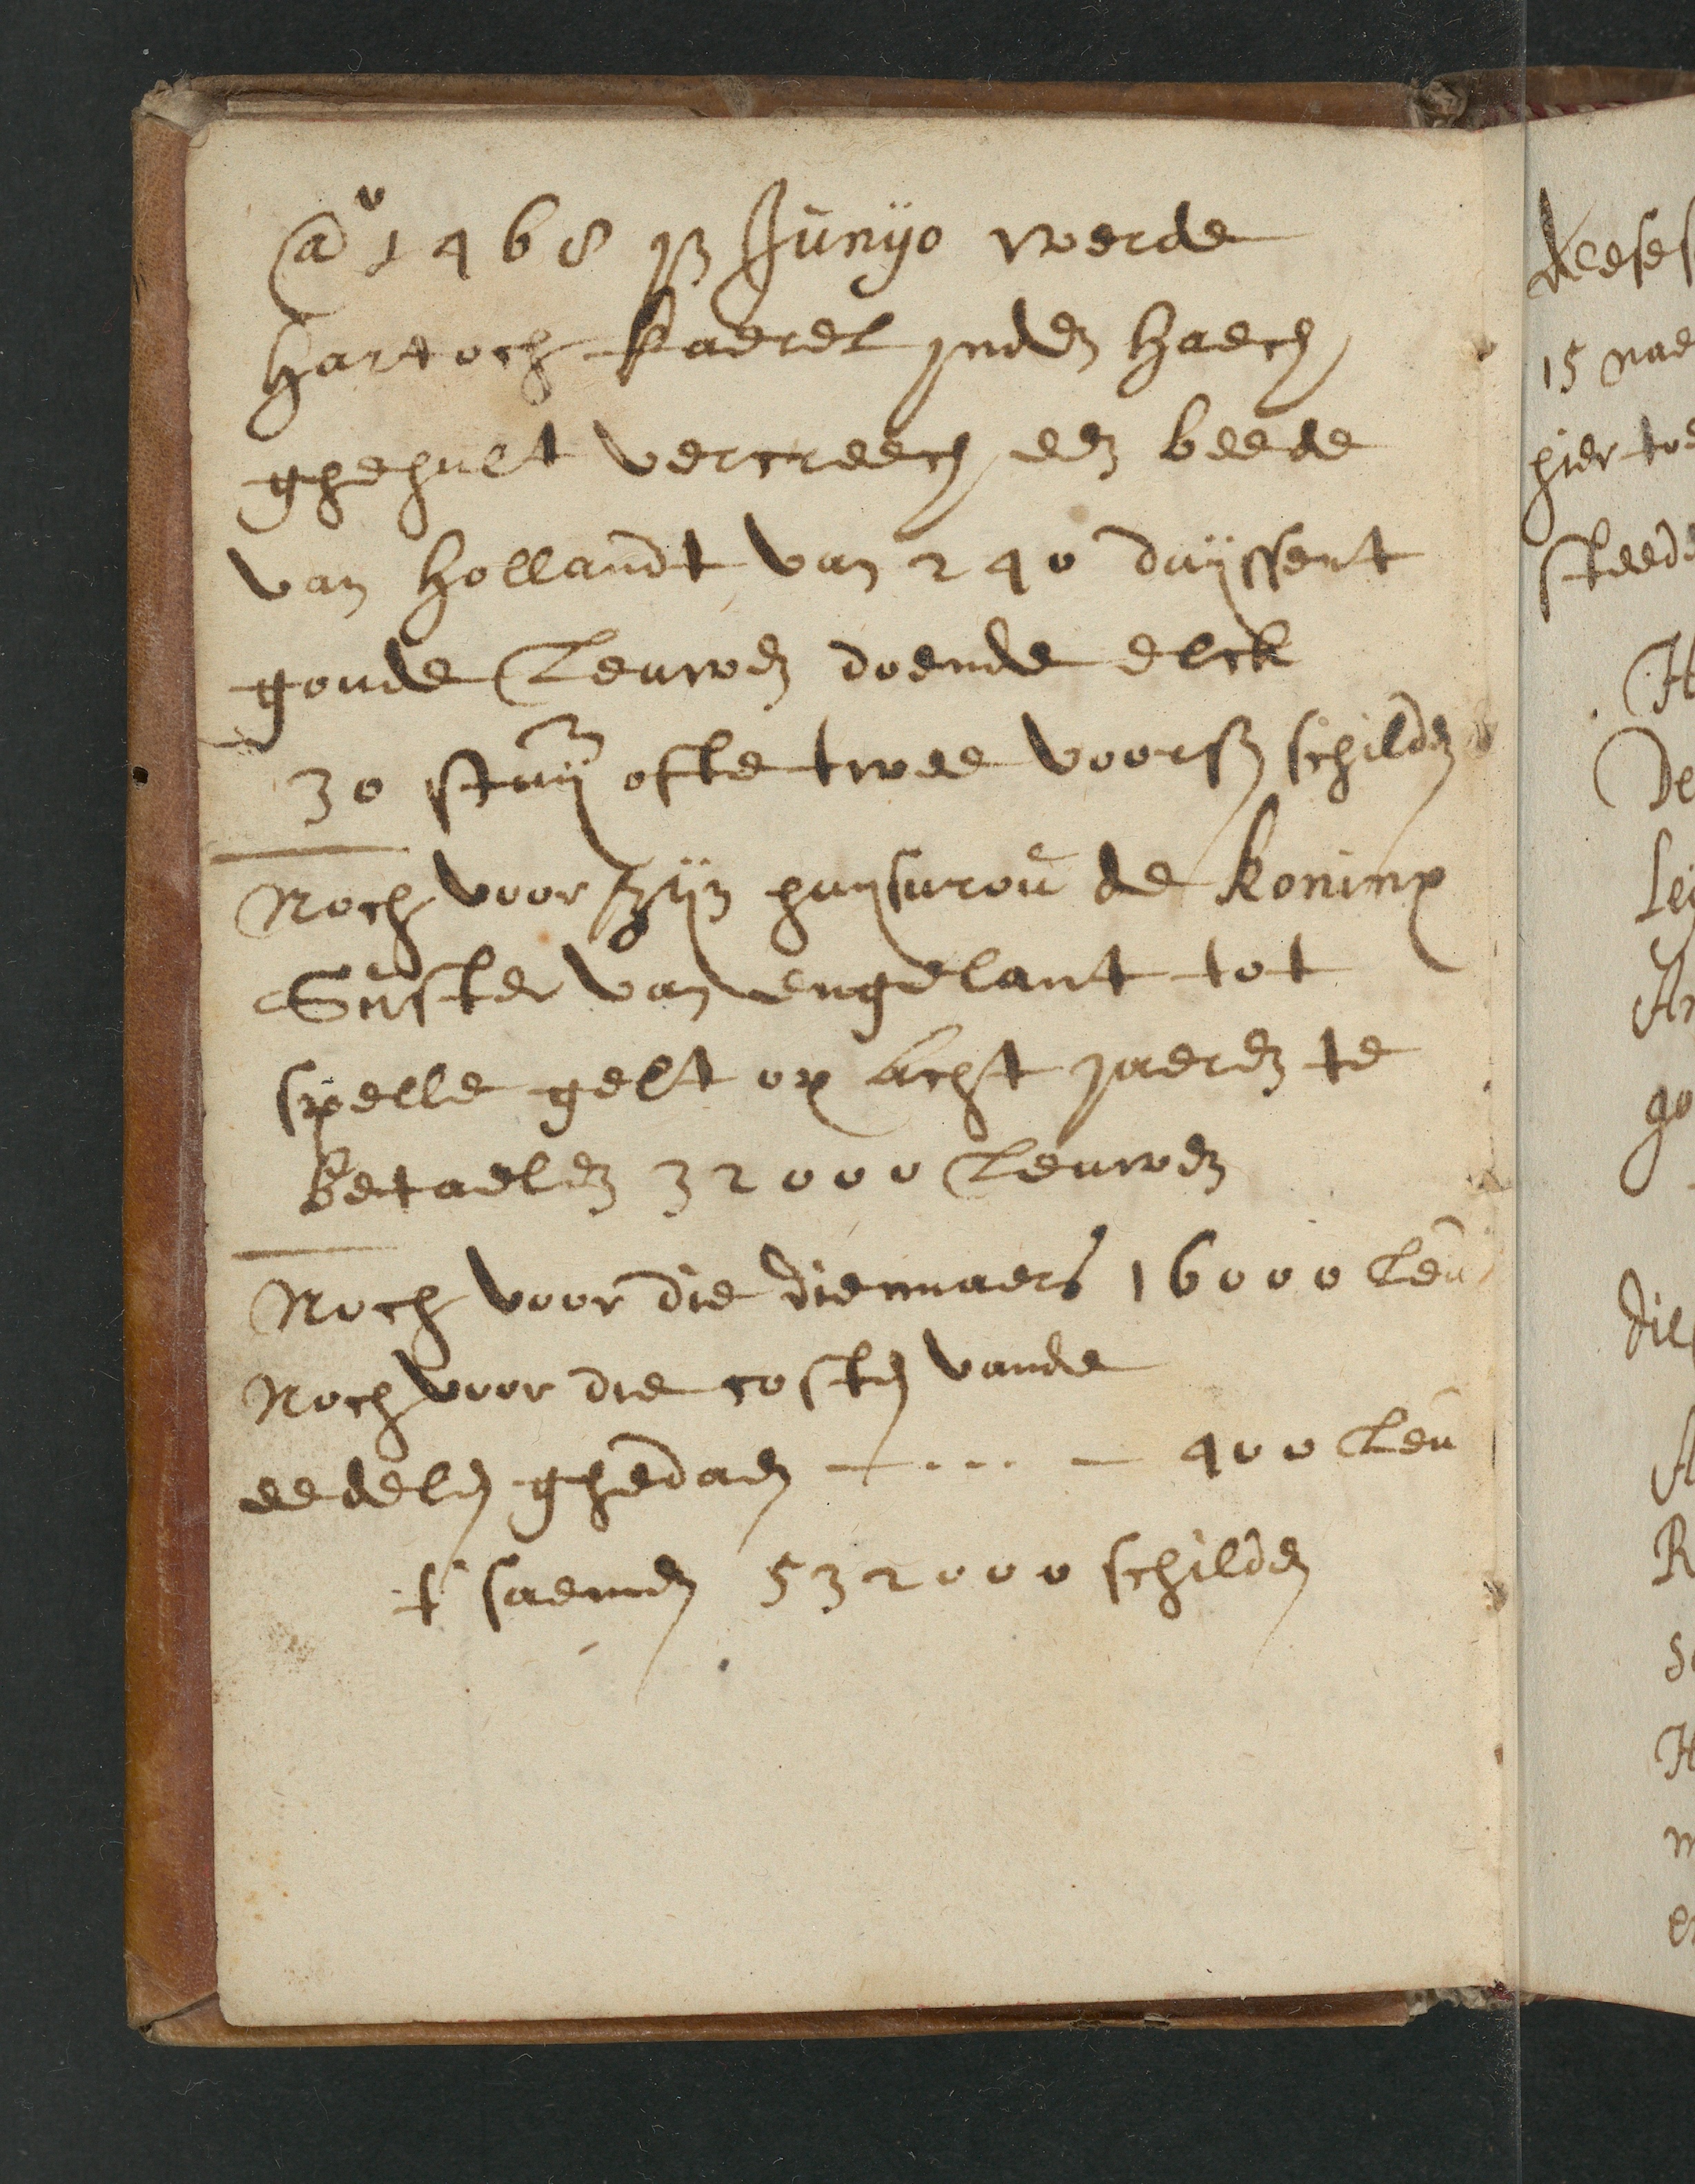 ao 1468 13 Junyo werde
Hartoch Kaerel inden Haech
ghehult vercreech een beede
van Hollandt van 240 duijssent
goude Leuwen doende elck
30 stuij ofte twee voors schilden
Noch voor zijn huijsvrou de Koninx
Suster van engelant tot
spelle gelt op acht jaeren te
betaelen 32000 Leuwen
Noch voor die dienaers 16000 Leu
Noch voor die costen vande
eedelen ghedaen — ... — 400 Leu
t'saemen 532000 schilden
deses
15 nae
hier toe
steede
H
De
Ley
go
die